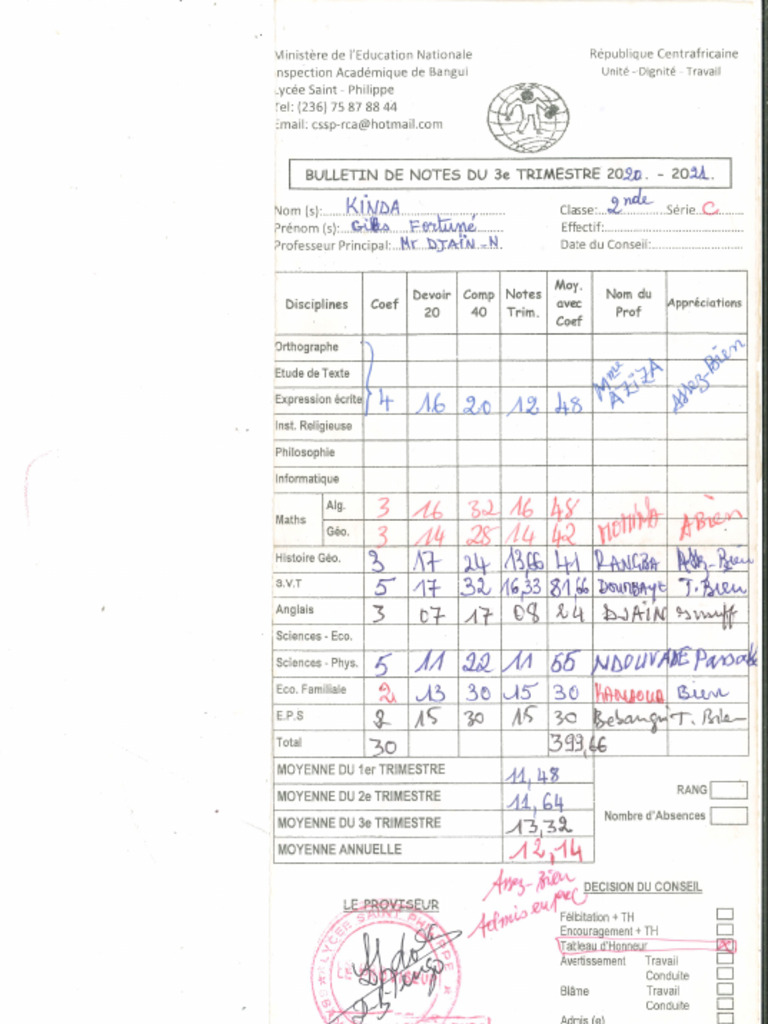 Ministère de l'Education Nationale République Centrafricaine
Inspection Académique de Bangui Unité - Dignité - Travail
Lycée Saint - Philippe
Tel: (236) 75 87 88 44
Email: cssp-rca@hotmail.com
BULLETIN DE NOTES DU 3e TRIMESTRE 2020. - 2021.
Nom (s): KINDA Classe: 2nde Série C
Prénom (s): Gilles Fortuné Effectif:
Professeur Principal: Mr DJAÏN-N. Date du Conseil:
Disciplines Coef Devoir 20 Comp 40 Notes Trim. Moy. avec Coef Nom du Prof Appréciations
Orthographe
Etude de Texte
Expression écrite 4 16 20 12 48 Mme AZIZA Assez-Bien
Inst. Religieuse
Philosophie
Informatique
Maths Alg. 3 16 32 16 48
Géo. 3 14 28 14 42 ABien
Histoire Géo. 3 17 24 13,66 41 RANGBA Assez-Bien
S.V.T 5 17 32 16,33 81,66 DOUMBAYE T.Bien
Anglais 3 07 17 08 24 DJAÏN Insuff
Sciences - Eco.
Sciences - Phys. 5 11 22 11 55 Passable
Eco. Familiale 2 13 30 15 30 Bien
E.P.S 2 15 30 15 30 T. Bien
Total 30 399,66
MOYENNE DU 1er TRIMESTRE 11,48
MOYENNE DU 2e TRIMESTRE 11,64
MOYENNE DU 3e TRIMESTRE 13,32
MOYENNE ANNUELLE 12,14
RANG
Nombre d'Absences
Assez-Bien
Admis en
LE PROVISEUR
LYCEE SAINT PHILIPPE
DECISION DU CONSEIL
Félbitation + TH
Encouragement + TH
Tableau d'Honneur X
Avertissement Travail
Conduite
Blâme Travail
Conduite
Admis (e)